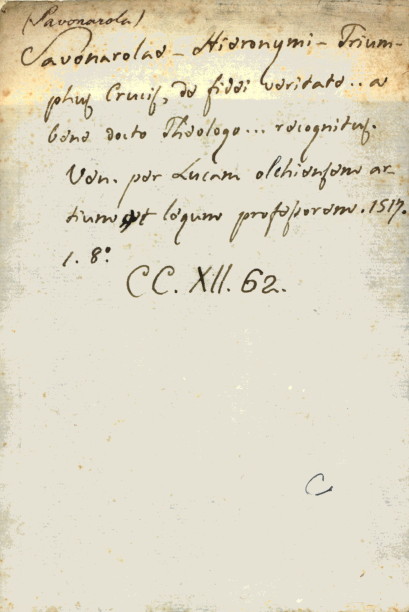 (Savonarola)
Savonarolae - Hieronymi - Trium-
phus Crucis, de fidei veritate.. a
bene docto Theologo... recognitus.
Ven. per Lucam olchiensem ar-
tium et legum professorem. 1517.
1. 8°
CC. XII. 62.
C